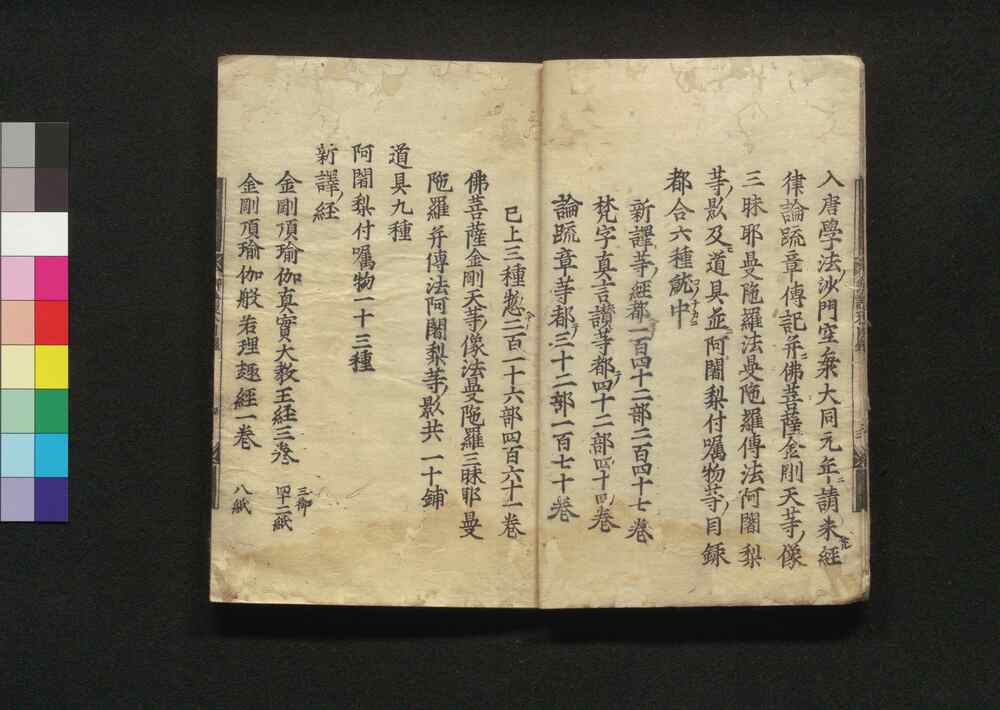 入唐學法沙門空衆大同元年請来經
律論䟽章傳記并佛菩薩金剛天等像
三昧耶曼陁羅法曼陁羅傳法阿闍梨
等影及道具並阿闍梨付囑物等目録
都合六種就中
新譯等經都一百四十二部二百四十七卷
梵字真言讃等都四十二部四十四卷
論䟽章等都三十二部一百七十卷
已上三種惣二百一十六部四百六十一卷
佛菩薩金剛天等像法曼陁羅三昧耶曼
陁羅并傳法阿闍梨等影共一十鋪
道具九種
阿闍梨付囑物一十三種
新譯經
金剛頂瑜伽真實大教王經三巻 三𢃄 四十二紙
金剛頂瑜伽般若理趣經一巻 八紙